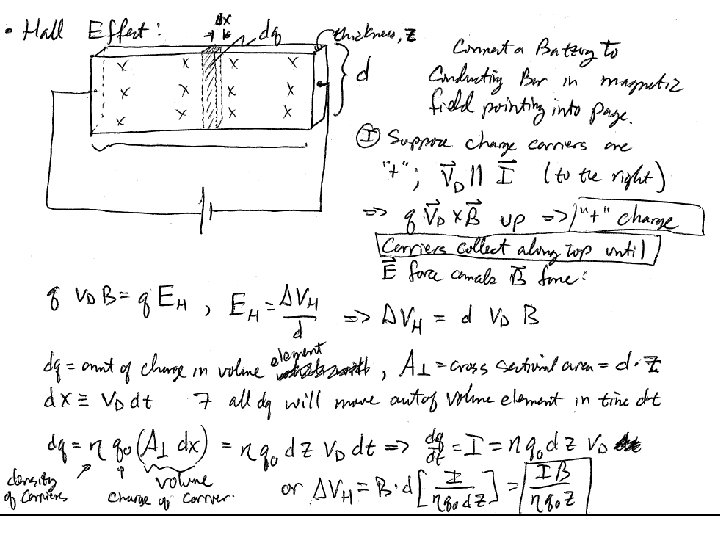 • Hall Effect:
Δx
dq
thickness, z
d
x x x x
x x x x
x x x x
Connect a Battery to
Conducting Bar in magnetic
field pointing into page.
Ⓘ Suppose charge carriers are
"+"; V⃗_D || I⃗ (to the right)
=> q V⃗_D x B⃗ up => "+" charge
Carriers collect along top until
E⃗ force cancels B⃗ force:
q V_D B = q E_H , E_H = ΔV_H / d => ΔV_H = d V_D B
dq = amt of charge in volume element , A⊥ = cross sectional area = d · z
dx ≡ V_D dt ∃ all dq will move out of volume element in time dt
dq = n q₀ (A⊥ dx) = n q₀ d z V_D dt => dq/dt = I = n q₀ d z V_D
density of carriers
charge of carrier.
volume
or ΔV_H = B · d [ I / n q₀ d z ] = I B / n q₀ z